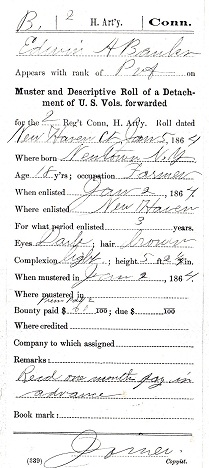 B. 2 H. Art'y. Conn.
Edwin A
Appears with rank of Pvt on
Muster and Descriptive Roll of a Detach-
ment of U. S. Vols. forwarded
for the 2 Reg't Conn. H. Art'y. Roll dated
New Haven Ct Jan 5, 1864
Where born Newtown N.Y.
Age 18 y'rs; occupation Farmer
When enlisted Jan 2, 1864
Where enlisted New Haven
For what period enlisted 3 years.
Eyes Dark; hair Brown
Complexion Light; height 5 ft. in.
When mustered in Jan 2, 1864.
Where mustered in
Bounty paid $ 100; due $ 100
Where credited
Company to which assigned
Remarks:
Recd one month pay in
advance
Book mark:
(339) Copyist.